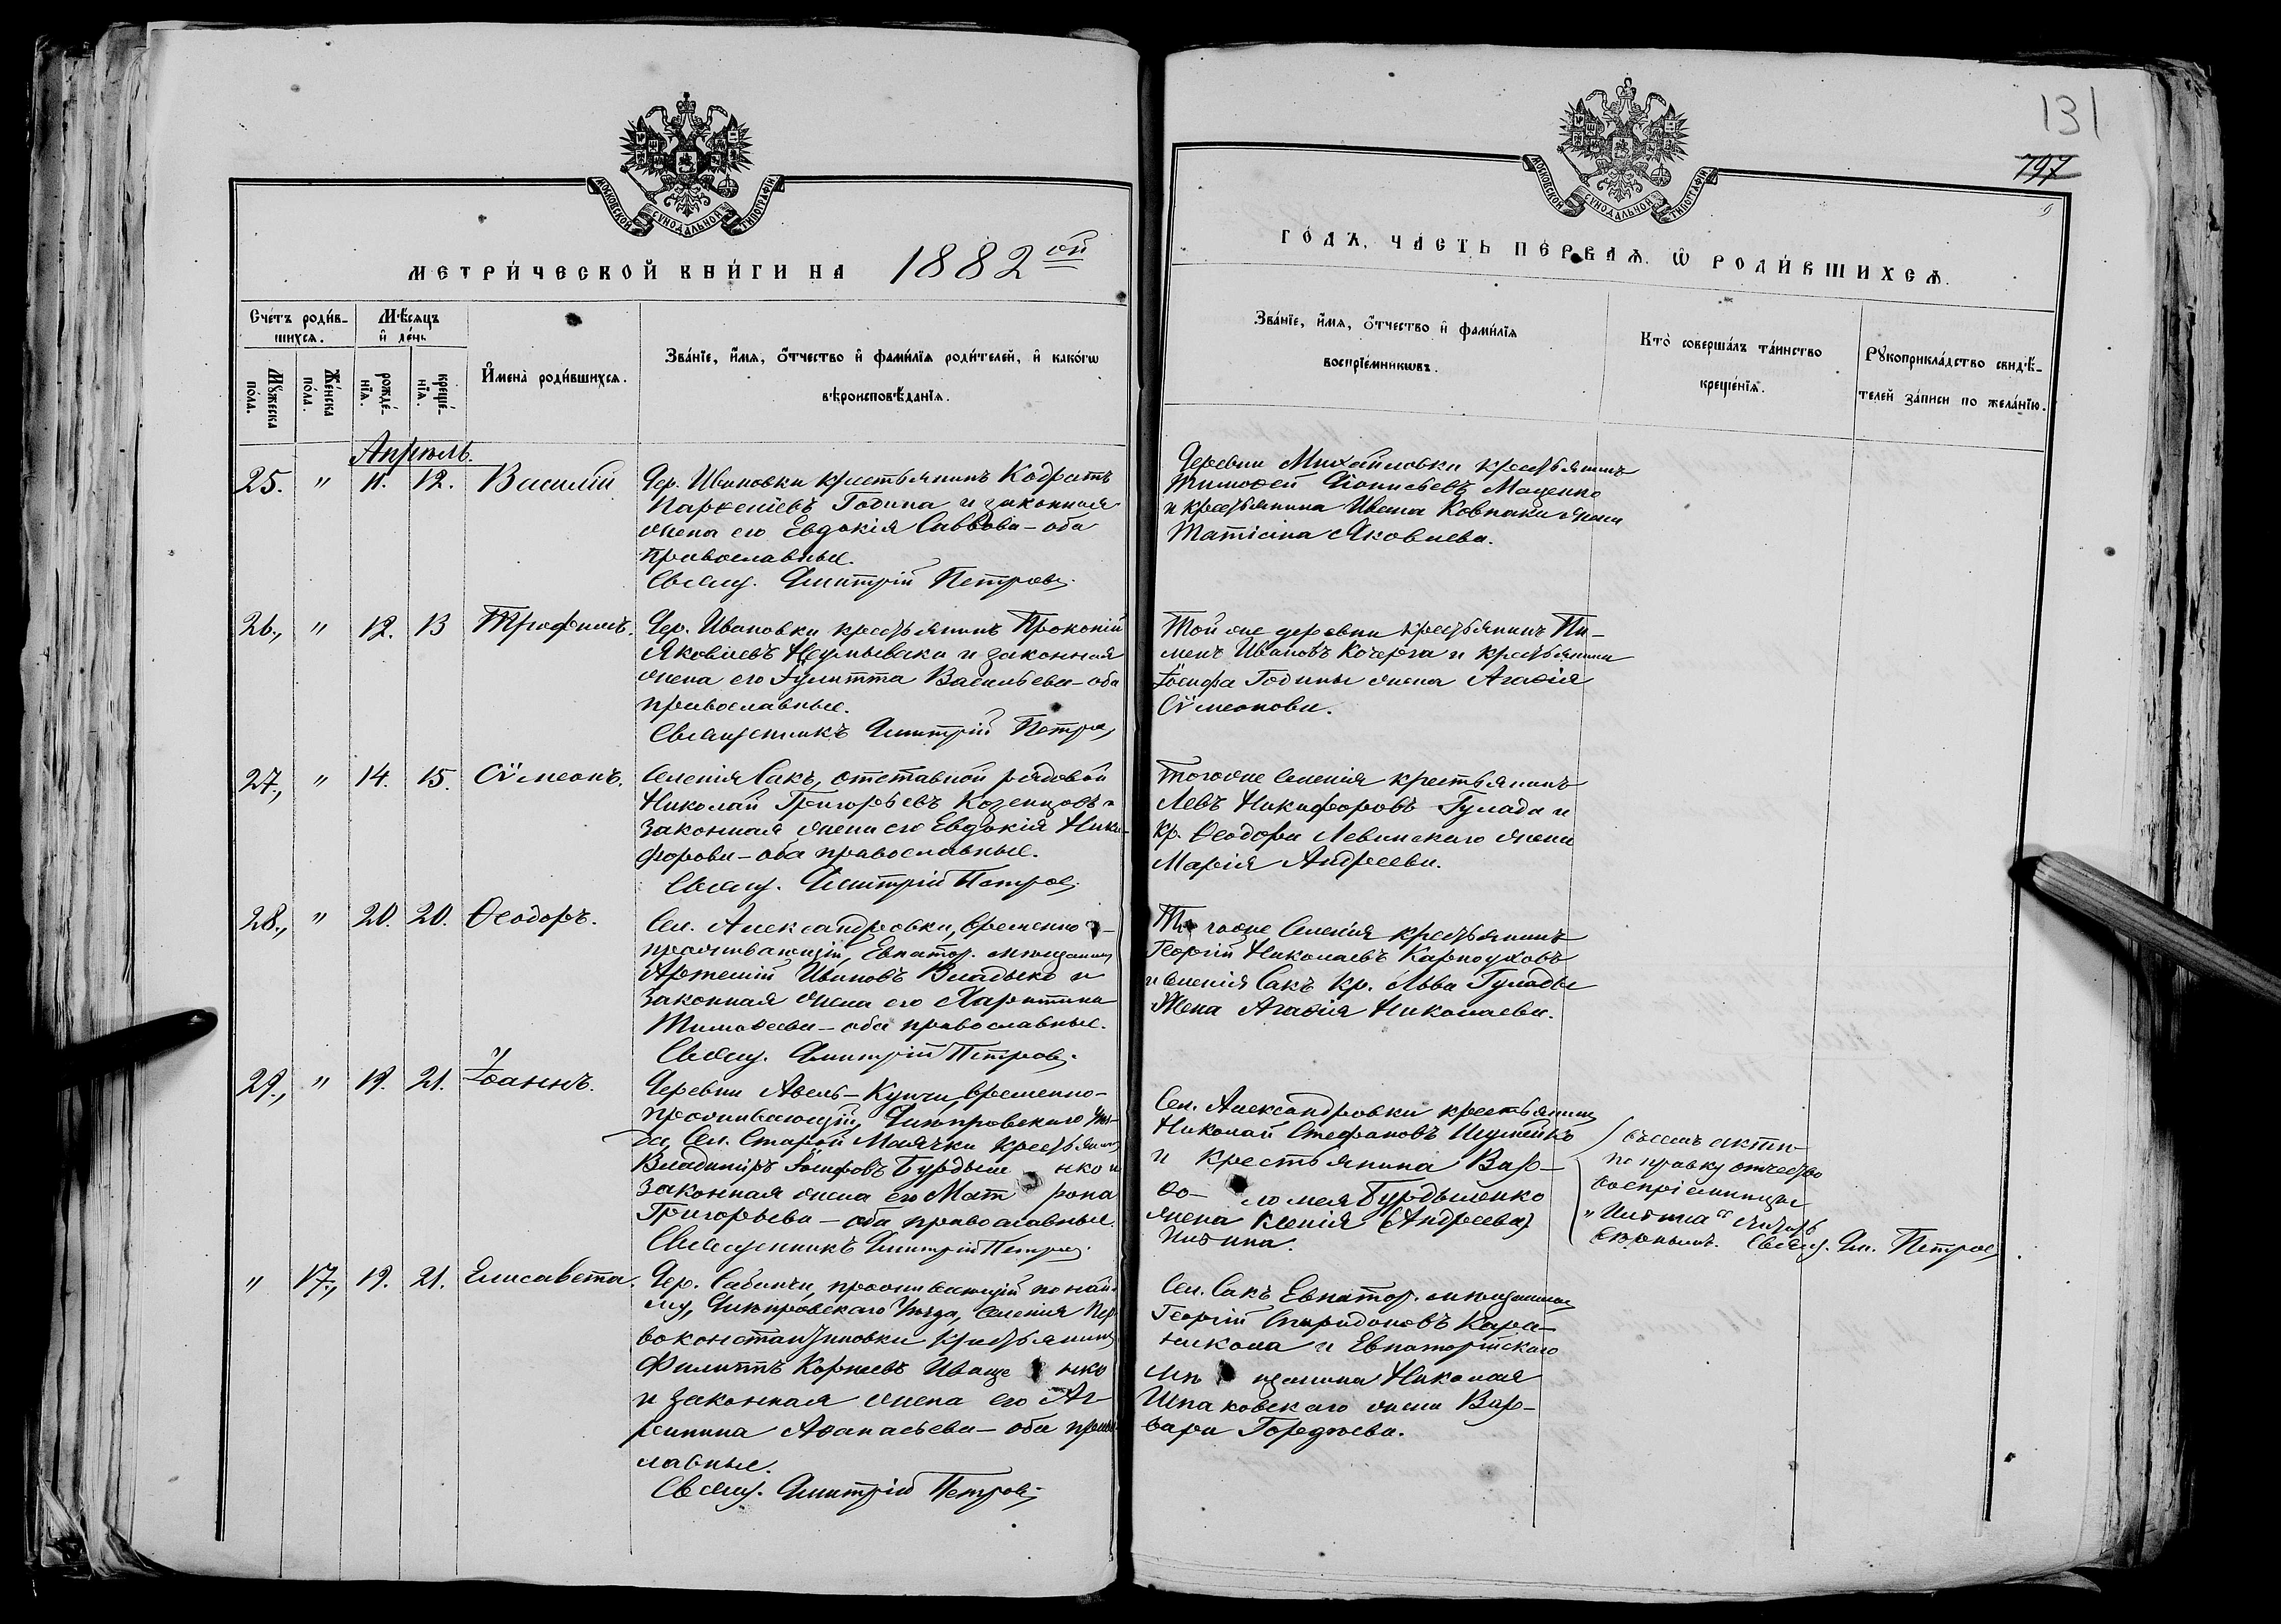 МОСКОВСКОЙ СѴНОДАЛЬНОЙ ТИПОГРАФІИ
МЕТРИ́ЧЕСКОЙ КНИ́ГИ НА 1882ой
Сче́тъ роди́в-
шихсѧ.
Мѣ́сѧцъ
и҆ де́нь
И҆мена̀ роди́вшихсѧ.
Зва́нїе, и҆́мѧ, ѻ҆́тчество и҆ фами́лїѧ роди́телей, и҆ како́гѡ
вѣроисповѣ́данїѧ.
Мꙋ́жеска
по́ла.
Же́нска
по́ла.
рожде́-
нїѧ.
креще́-
нїѧ.
Апрѣль.
25. " 11. 12. Василій
Дер. Ивановки крестьянинъ Кодратъ
Парѳеніевъ Година и законная
жена его Евдокія Саввова - оба
православные.
Свящ. Димитрій Петровъ.
26., " 12. 13 Трофимъ.
Дер. Ивановки крестьянинъ Прокопій
Яковлевъ и законная
жена его Іулитта Васильева - оба
православные.
Священникъ Димитрій Петровъ
27., " 14. 15. Сѷмеонъ.
Селенія Сакъ, отставной рядовой
Николай Григорьевъ и
законная жена его Евдокія Ники-
форова - оба православные.
Свящ. Димитрій Петровъ.
28., " 20. 20. Ѳеодоръ.
Сел. Александровки, временно
проживающій, Евпатор. мѣщанинъ
Артемій Ивановъ Владыко и
законная жена его Харитина
Тимоѳеева - оба православные.
Свящ. Димитрій Петровъ.
29., " 19. 21. Іоаннъ.
Деревни временно-
проживающій, Днѣпровскаго Уѣз-
да, Сел. Старой Маячки крестьянинъ
Владиміръ Іосифовъ Бурдыле нко и
законная жена его Мат рона
Григорьева - оба православные.
Священникъ Димитрій Петровъ.
" 17., 19. 21. Елисавета.
Дер. проживающій по най-
му, Днѣпровскаго Уѣзда, селенія Пер-
воконстантиновки крестьянинъ
Филиппъ Корнеевъ Иваще нко
и законная жена его Аг
рипина Аѳанасьева - оба право-
славные.
Свящ. Димитрій Петровъ.
131
797
МОСКОВСКОЙ СѴНОДАЛЬНОЙ ТИПОГРАФІИ
ГО́ДЪ, ЧА́СТЬ ПЕ́РВАѦ, Ѡ҆ РОДИ́ВШИХСѦ.
Зва́нїе, и҆́мѧ, ѻ҆́тчество и҆ фами́лїѧ
воспрїе́мникѡвъ.
Кто̀ соверша́лъ та́инство
креще́нїѧ.
Рꙋкоприкла́дство свидѣ́-
телей за́писи по жела́нїю.
Деревни Михайловки крестьянинъ
Тимоѳей Діонисьевъ Маценко
и крестьянина Ивана Ковпаки жена
Татіана Яковлева.
Той же деревни крестьянинъ Пи-
менъ Ивановъ Кочерга и крестьянина
Іосифа Годины жена Агаѳія
Сѷмеонова.
Того же селенія крестьянинъ
Левъ Никифоровъ Гулада и
кр. Ѳеодора Левинскаго жена
Марія Андреева.
Того же селенія крестьянинъ
Георгій Николаевъ Карпоуховъ
и селенія Сакъ кр. Льва Гулады
Жена Агаѳія Николаева.
Сел. Александровки крестьянинъ
Николай Стефановъ Шумейко
и крестьянина Вар-
ѳо- ломея Бурдыленко
жена Ксенія (Андреева)
поправку отчество
воспріемницы
Свящ. Дм. Петровъ.
Сел. Сакъ Евпатор. мѣщанинъ
Георгій Спиридоновъ Кара-
никола и Евпаторійскаго
мѣ щанина Николая
Шпаковскаго жена Вар-
вара Гордѣева.